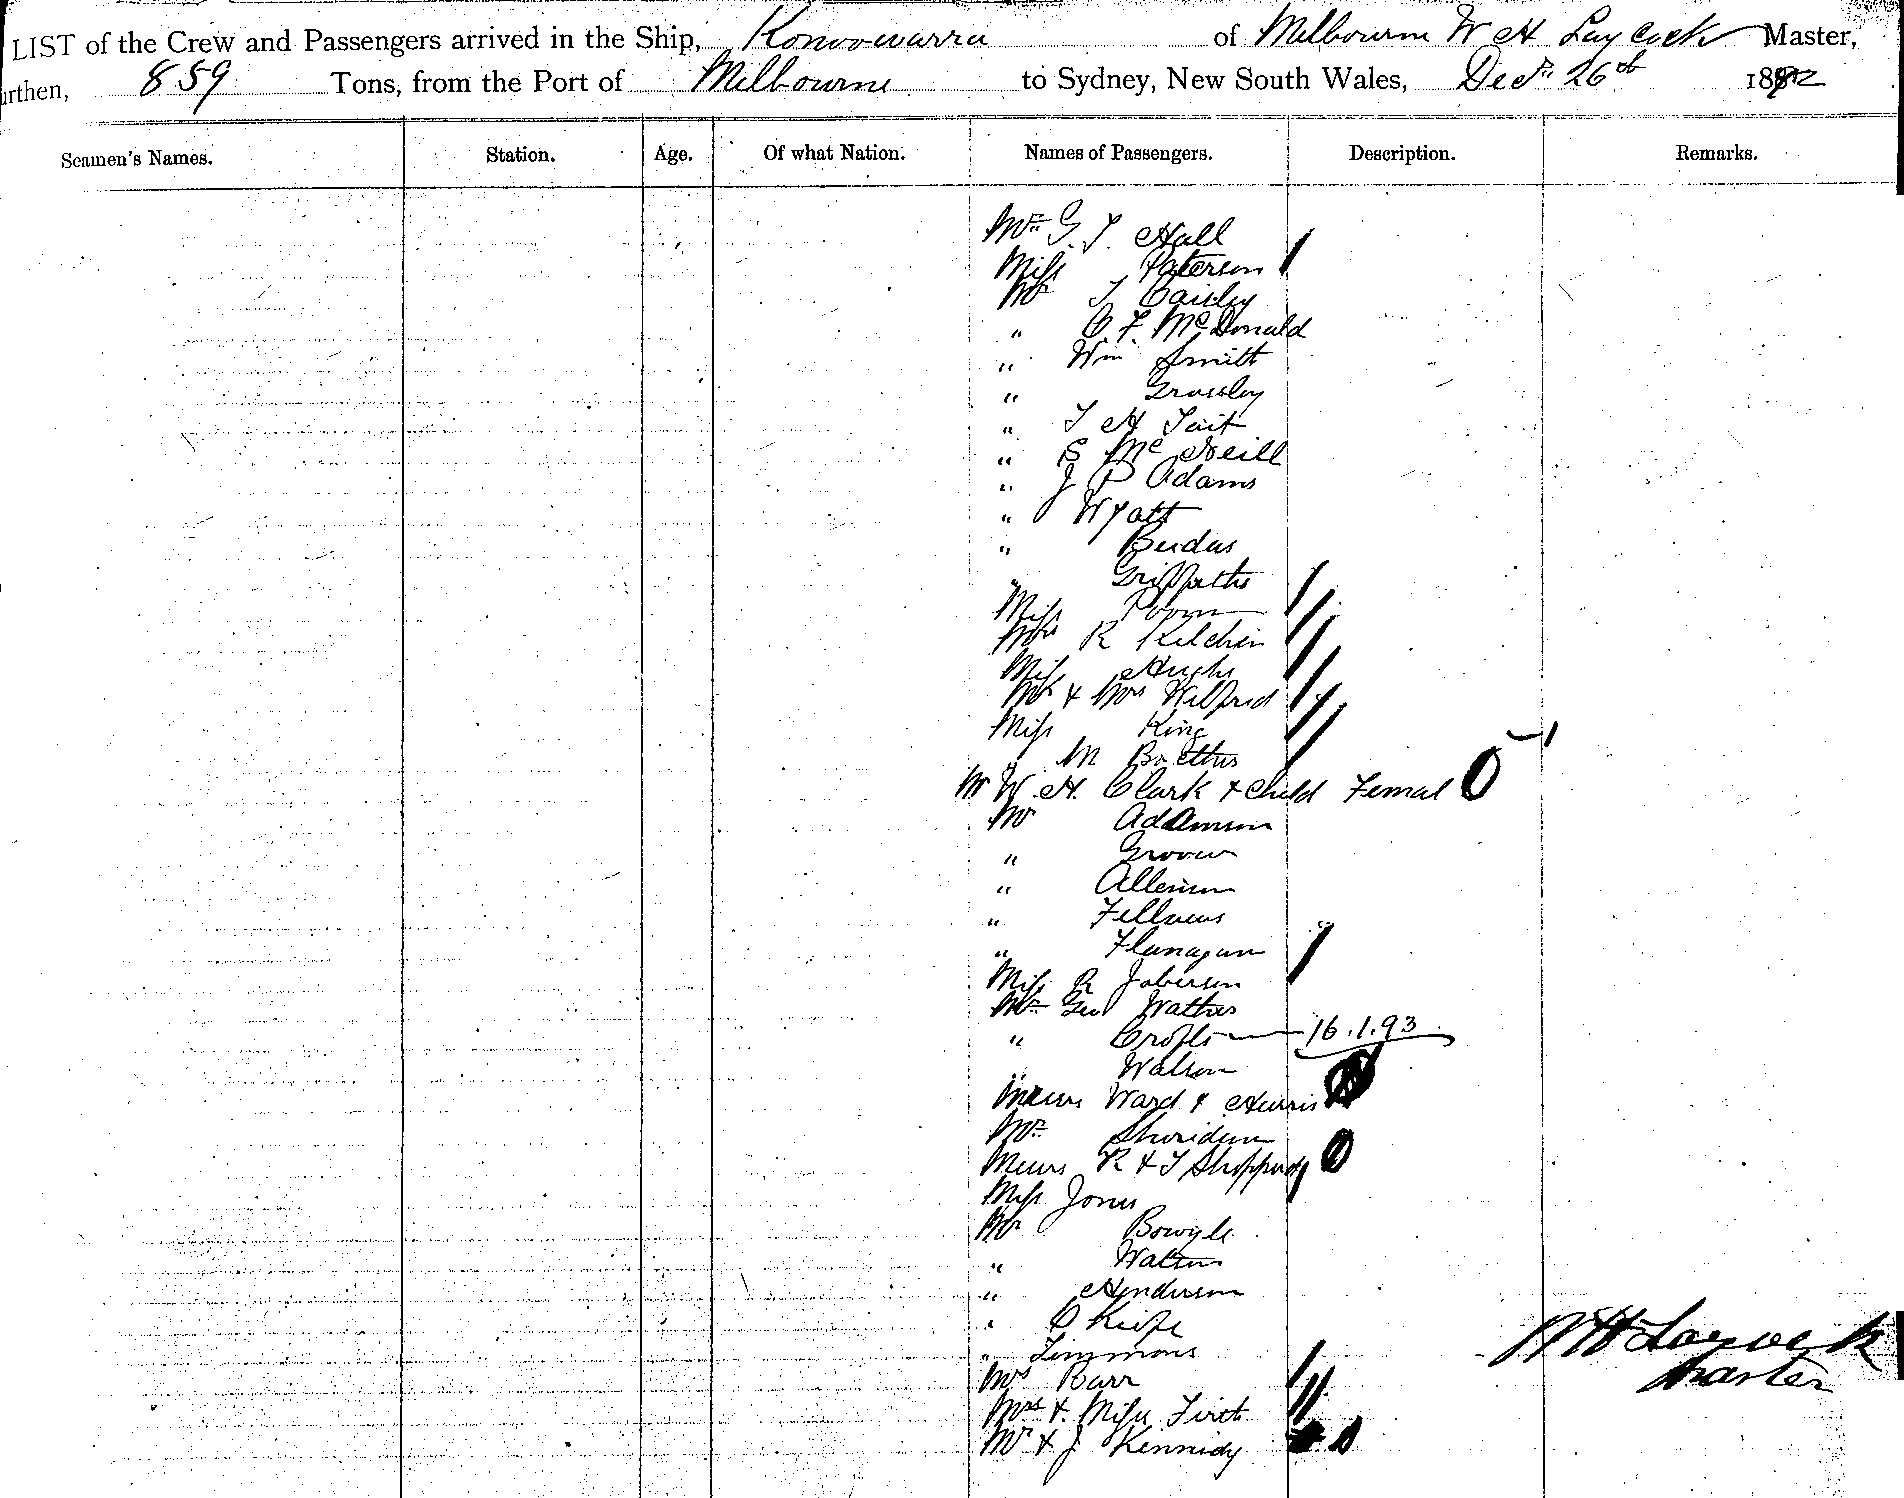 LIST of the Crew and Passengers arrived in the Ship, Konoowarra of Melbourne W H Laycock Master,
urthen, 859 Tons, from the Port of Melbourne to Sydney, New South Wales, Decr. 26th 1892
Seamen's Names. Station. Age. Of what Nation. Names of Passengers. Description. Remarks.
Mr G. J. Hall
Miss Paterson
Mr J Caisley
" C. F. McDonald
" Wm Smith
" Grassley
" T H Tait
" S McNeill
" J P Adams
" Wyatt
" Beidas
" Griffaths
Miss
Mrs R Kelchin
Miss Hughs
Mr & Mrs Wilfred
Miss King
" M
Mr W. H. Clark & Child Femal
Mr Adamson
" Groover
" Allenson
" Fellows
" Flanagan
Miss R Joberson
Mr Geo Watters
" Crofts 16.1.93
" Watson
Messrs Ward & Harris
Mr Sheridan
Messrs R & T Sheppard
Miss Jones
Mr Bowyle
" Walton
" Henderson
" O Keefe
" Timmons
Mrs Barr
Mrs & Miss Firth
Mr & J Kennidy
W H Laycock
Master